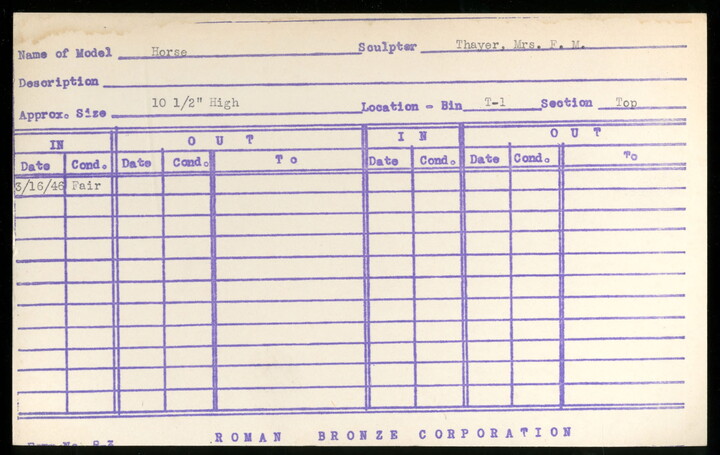 Name of Model Horse Sculptor Thayer, Mrs. F. M.
Description
Approx. Size 10 1/2" High Location - Bin T-1 Section Top
IN OUT IN OUT
Date Cond. Date Cond. To Date Cond. Date Cond. To
3/16/46 Fair
ROMAN BRONZE CORPORATION